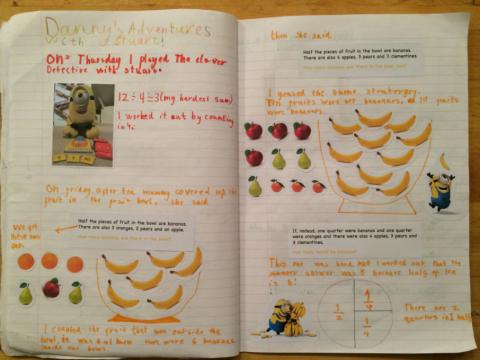 Danny's Adventures
With Stuart!
On Thursday I played The clever
Detective with stuart.
12 ÷ 4 = 3 (my hardest sum)
I worked it out by counting
in 4s
On friday, after tea mummy covered up the
fruit in the fruit bowl, she said
Half the pieces of fruit in the bowl are bananas.
There are also 3 oranges, 2 pears and an apple.
How many bananas are there in the bowl?
I counted the fruit that was outside the
bowl, it was 6 so there were 6 bananas
inside our bowl.
then she said
Half the pieces of fruit in the bowl are bananas.
There are also 4 apples, 3 pears and 3 clementines.
How many bananas are there in the bowl now?
I used the same
fruits were not bananas, so 10 fruits
were bananas.
If, instead, one quarter were bananas and one quarter
were oranges and there were also 4 apples, 3 pears and
3 clementines.
How many would be bananas?
This one was hard, but I worked out that the
answer was 5 because half of ten
is 5!
1/2
1/4
1/4
There are 2
quarters in a half